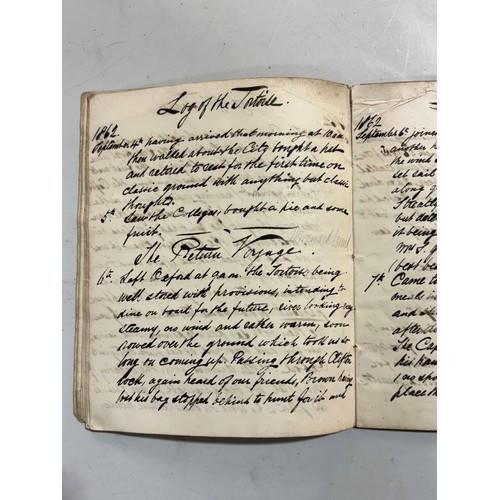 Log of the Tortoise.
1862.
September 4th having arrived that morning at 10 a.m.
then walked about the City bought a pet
and retired to rest for the first time on
classic ground with anything but classic
thoughts.
5th Saw the Colleges, bought a pie and some
fruit.
The Return Voyage.
6th Left Oxford at 9 a.m. the Tortoise being
well stored with provisions, intending to
dine on board for the future, river looking very
steamy, no wind and rather warm, soon
rowed over the ground which took us so
long on coming up. Passing through
lock, again heard of our friends, Brown having
lost his bag stopped behind to hunt for it and
1862
September 6th joined
another
the wind
set sail
along
Steadily
but
it being
Mrs
best
7th Came to
and
after
The Cap
his
as spo
place th